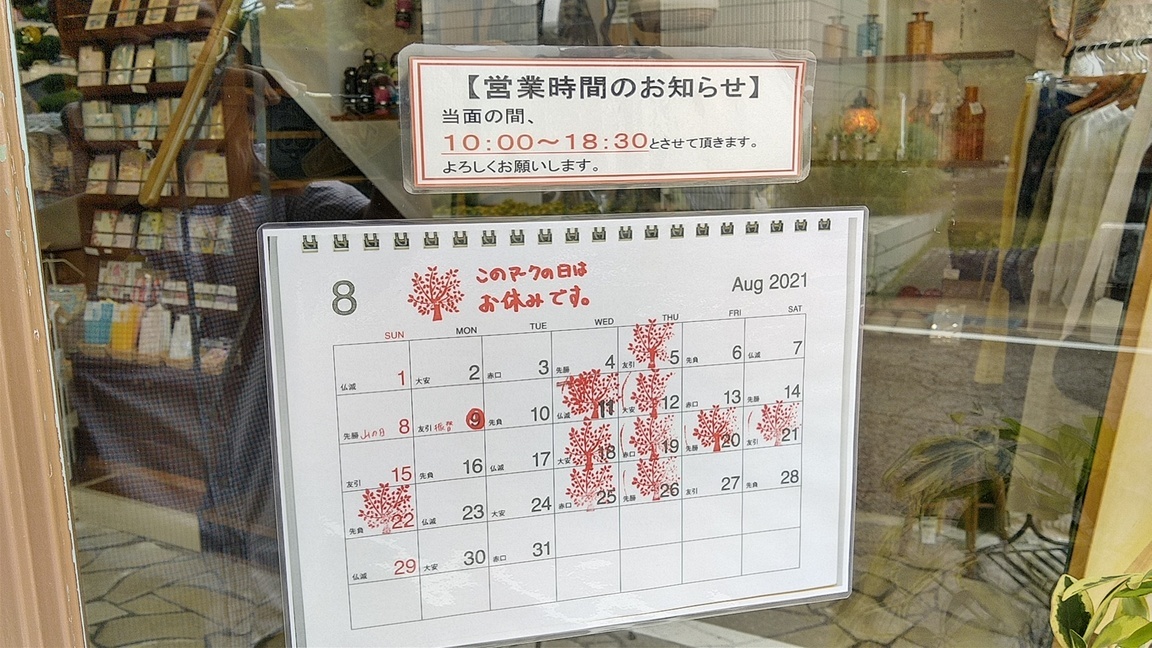 【営業時間のお知らせ】
当面の間、
10:00～18:30とさせて頂きます。
よろしくお願いします。
8
このマークの日は
お休みです。
Aug 2021
SUN MON TUE WED THU FRI SAT
仏滅 1 大安 2 赤口 3 先勝 4 友引 5 先負 6 仏滅 7
先勝 山の日 8 友引 振替 9 先負 10 仏滅 11 大安 12 赤口 13 先勝 14
友引 15 先負 16 仏滅 17 大安 18 赤口 19 先勝 20 友引 21
先負 22 仏滅 23 大安 24 赤口 25 先勝 26 友引 27 先負 28
仏滅 29 大安 30 赤口 31